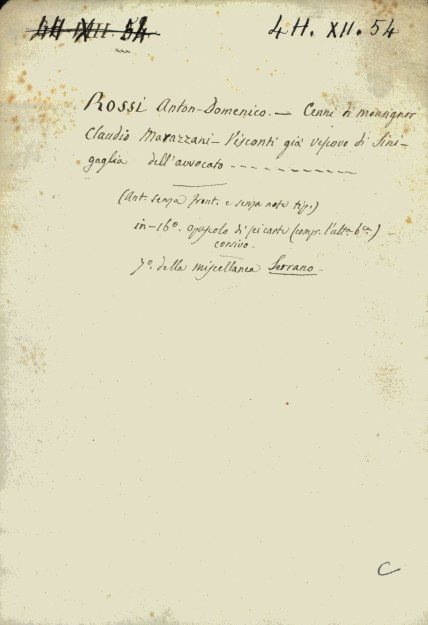 4H XII 54
4H. XII. 54
Rossi Anton-Domenico. — Cenni di monsignor
Claudio Marazzani-Visconti già vescovo di Sini-
gaglia dell'avvocato - - - - - - - - - - -
(Ant. senza front. e senza note tip.)
in-16°. opuscolo di sei carte (compr. l'ult. bca.) —
corsivo.
7°. della miscellanea Serrano.
C